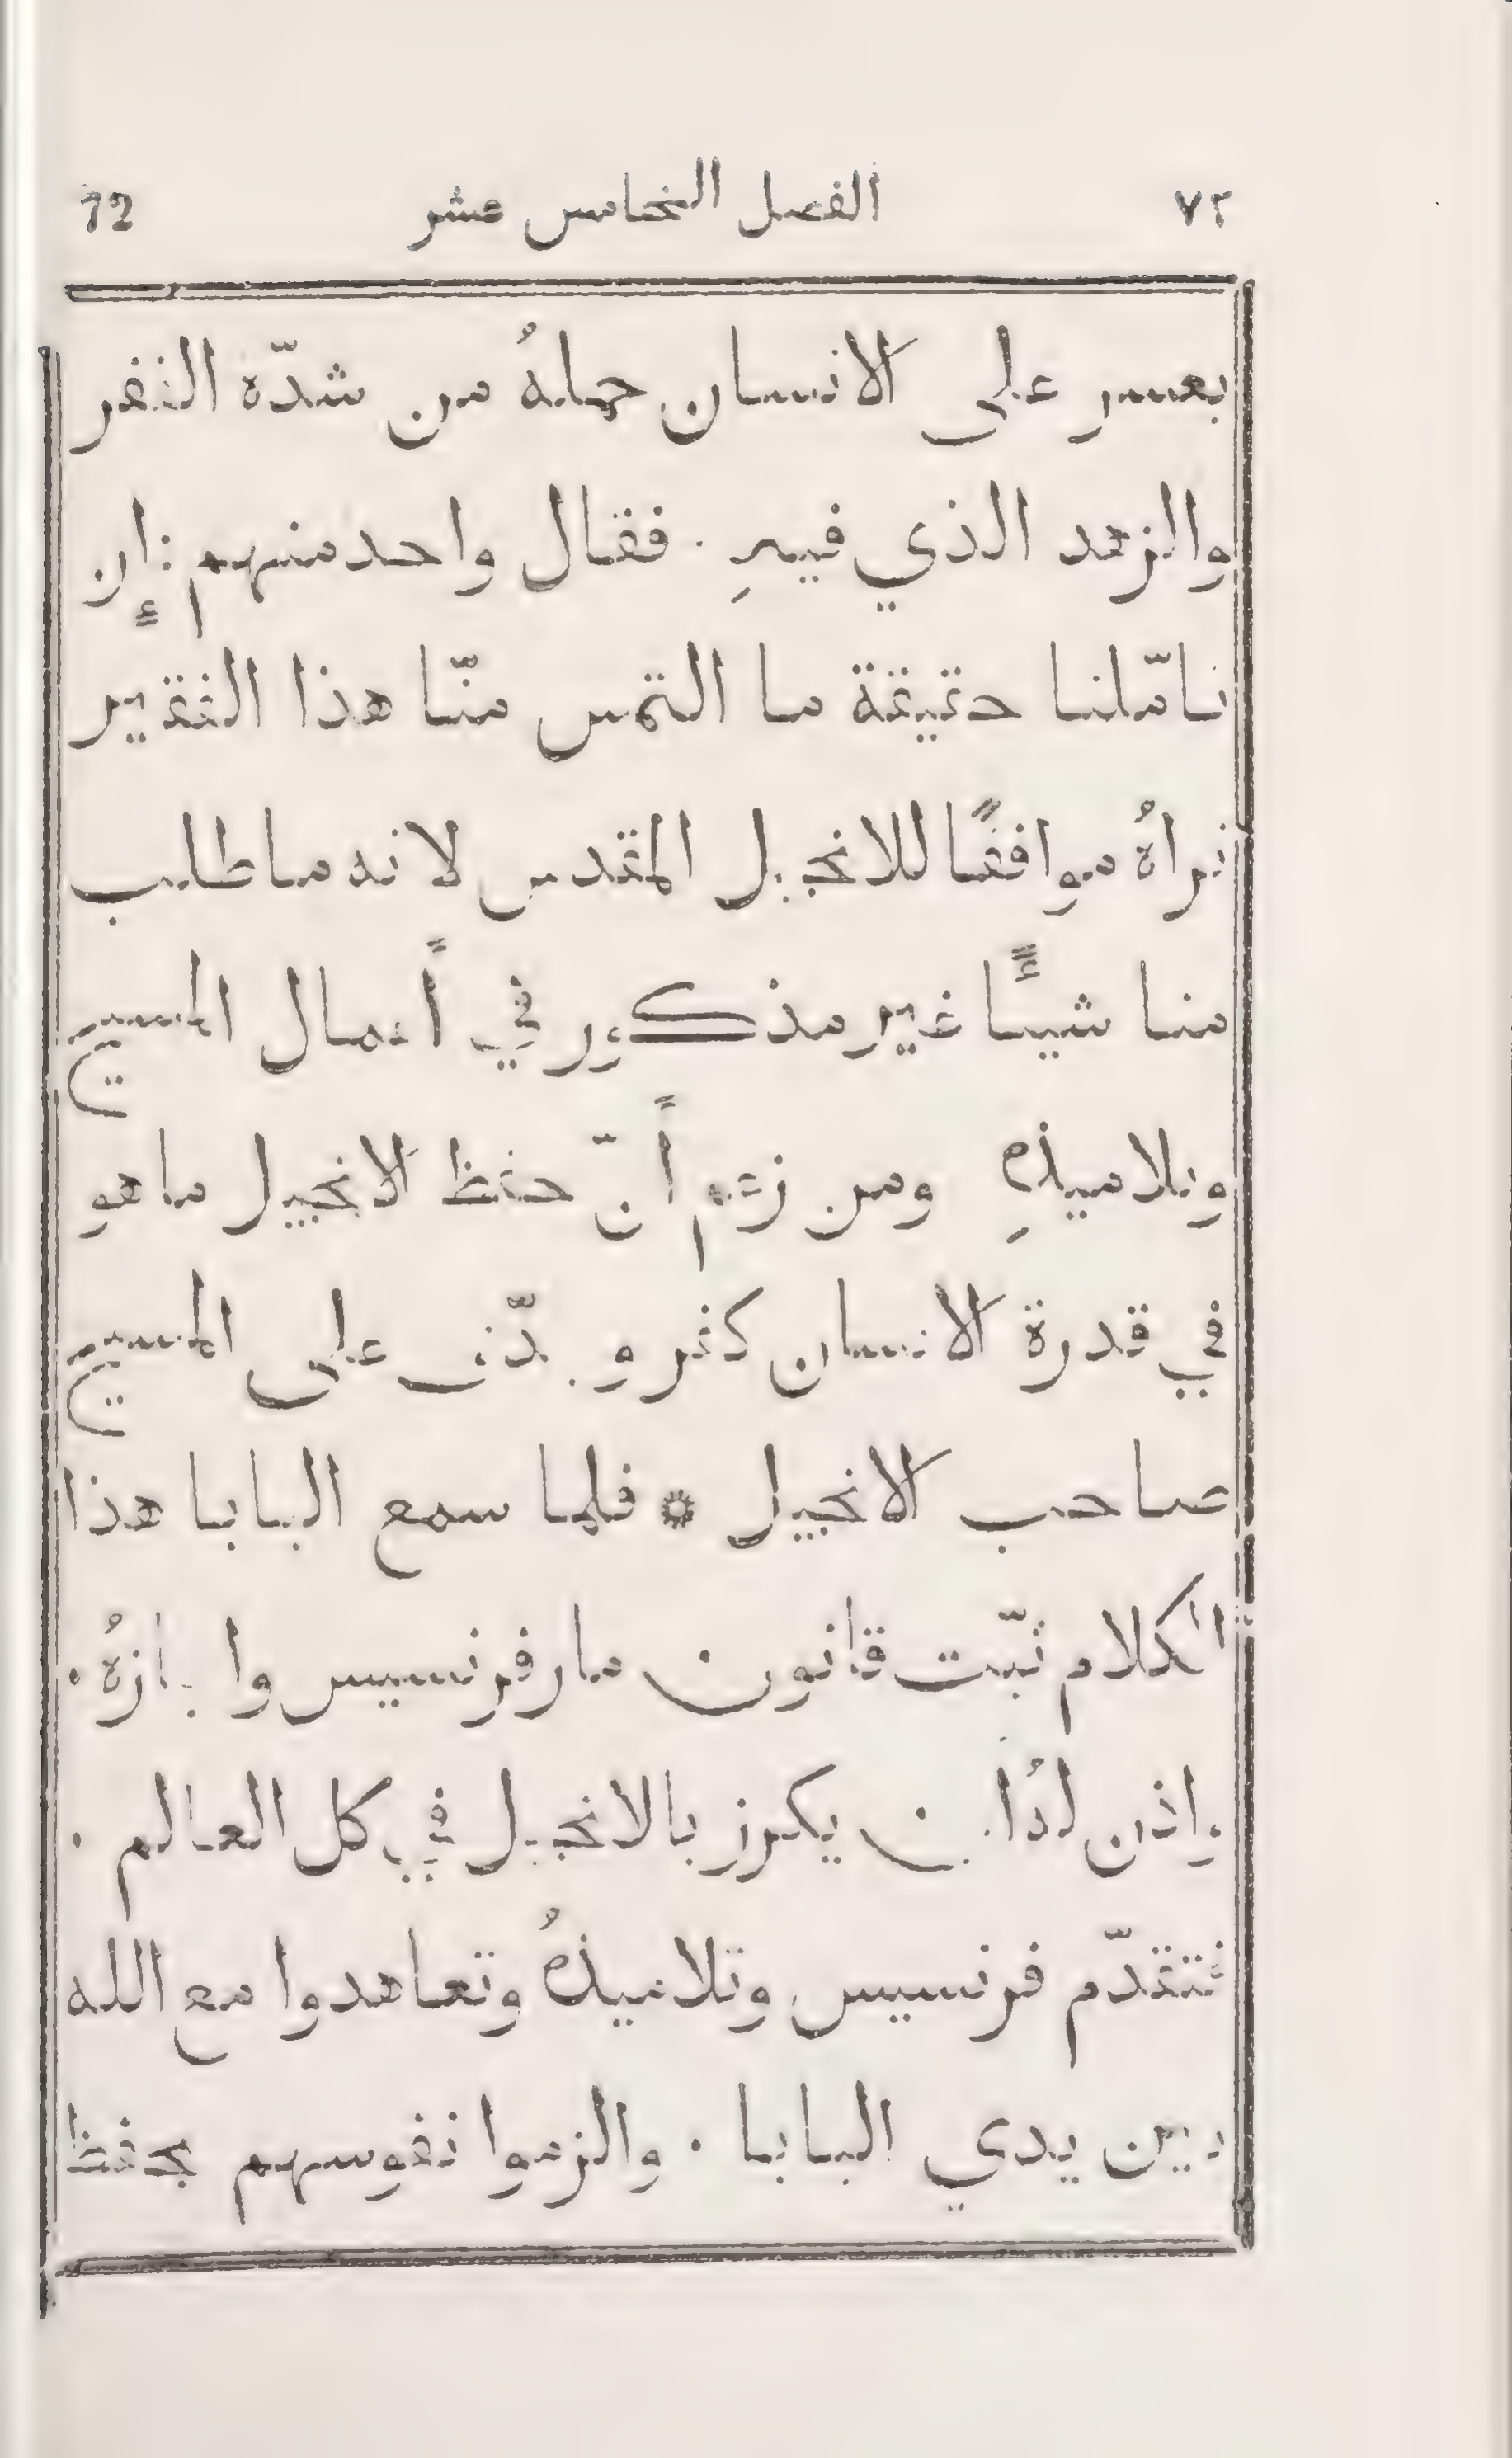 ٧٢ الفصل الخامس عشر 72
يعسر على الانسان حملهُ من شدّة الفقر
والزهد الذي فيهِ . فقال واحد منهم : إن
تامّلنا حقيقة ما التمس منّا هذا الفقير
نراهُ موافقًا للانجيل المقدس لانه ما طلب
منا شيئًا غير مذكور في أعمال المسيح
وتلاميذهِ ومن زعم أنّ حفظ الانجيل ما هو
في قدرة الانسان كفر و على المسيح
صاحب الانجيل * فلما سمع البابا هذا
الكلام ثبّت قانون مار فرنسيس و
يكرز بالانجيل في كل العالم .
فتقدّم فرنسيس وتلاميذهُ وتعاهدوا مع الله
بين يدي البابا . والزموا نفوسهم بحفظ